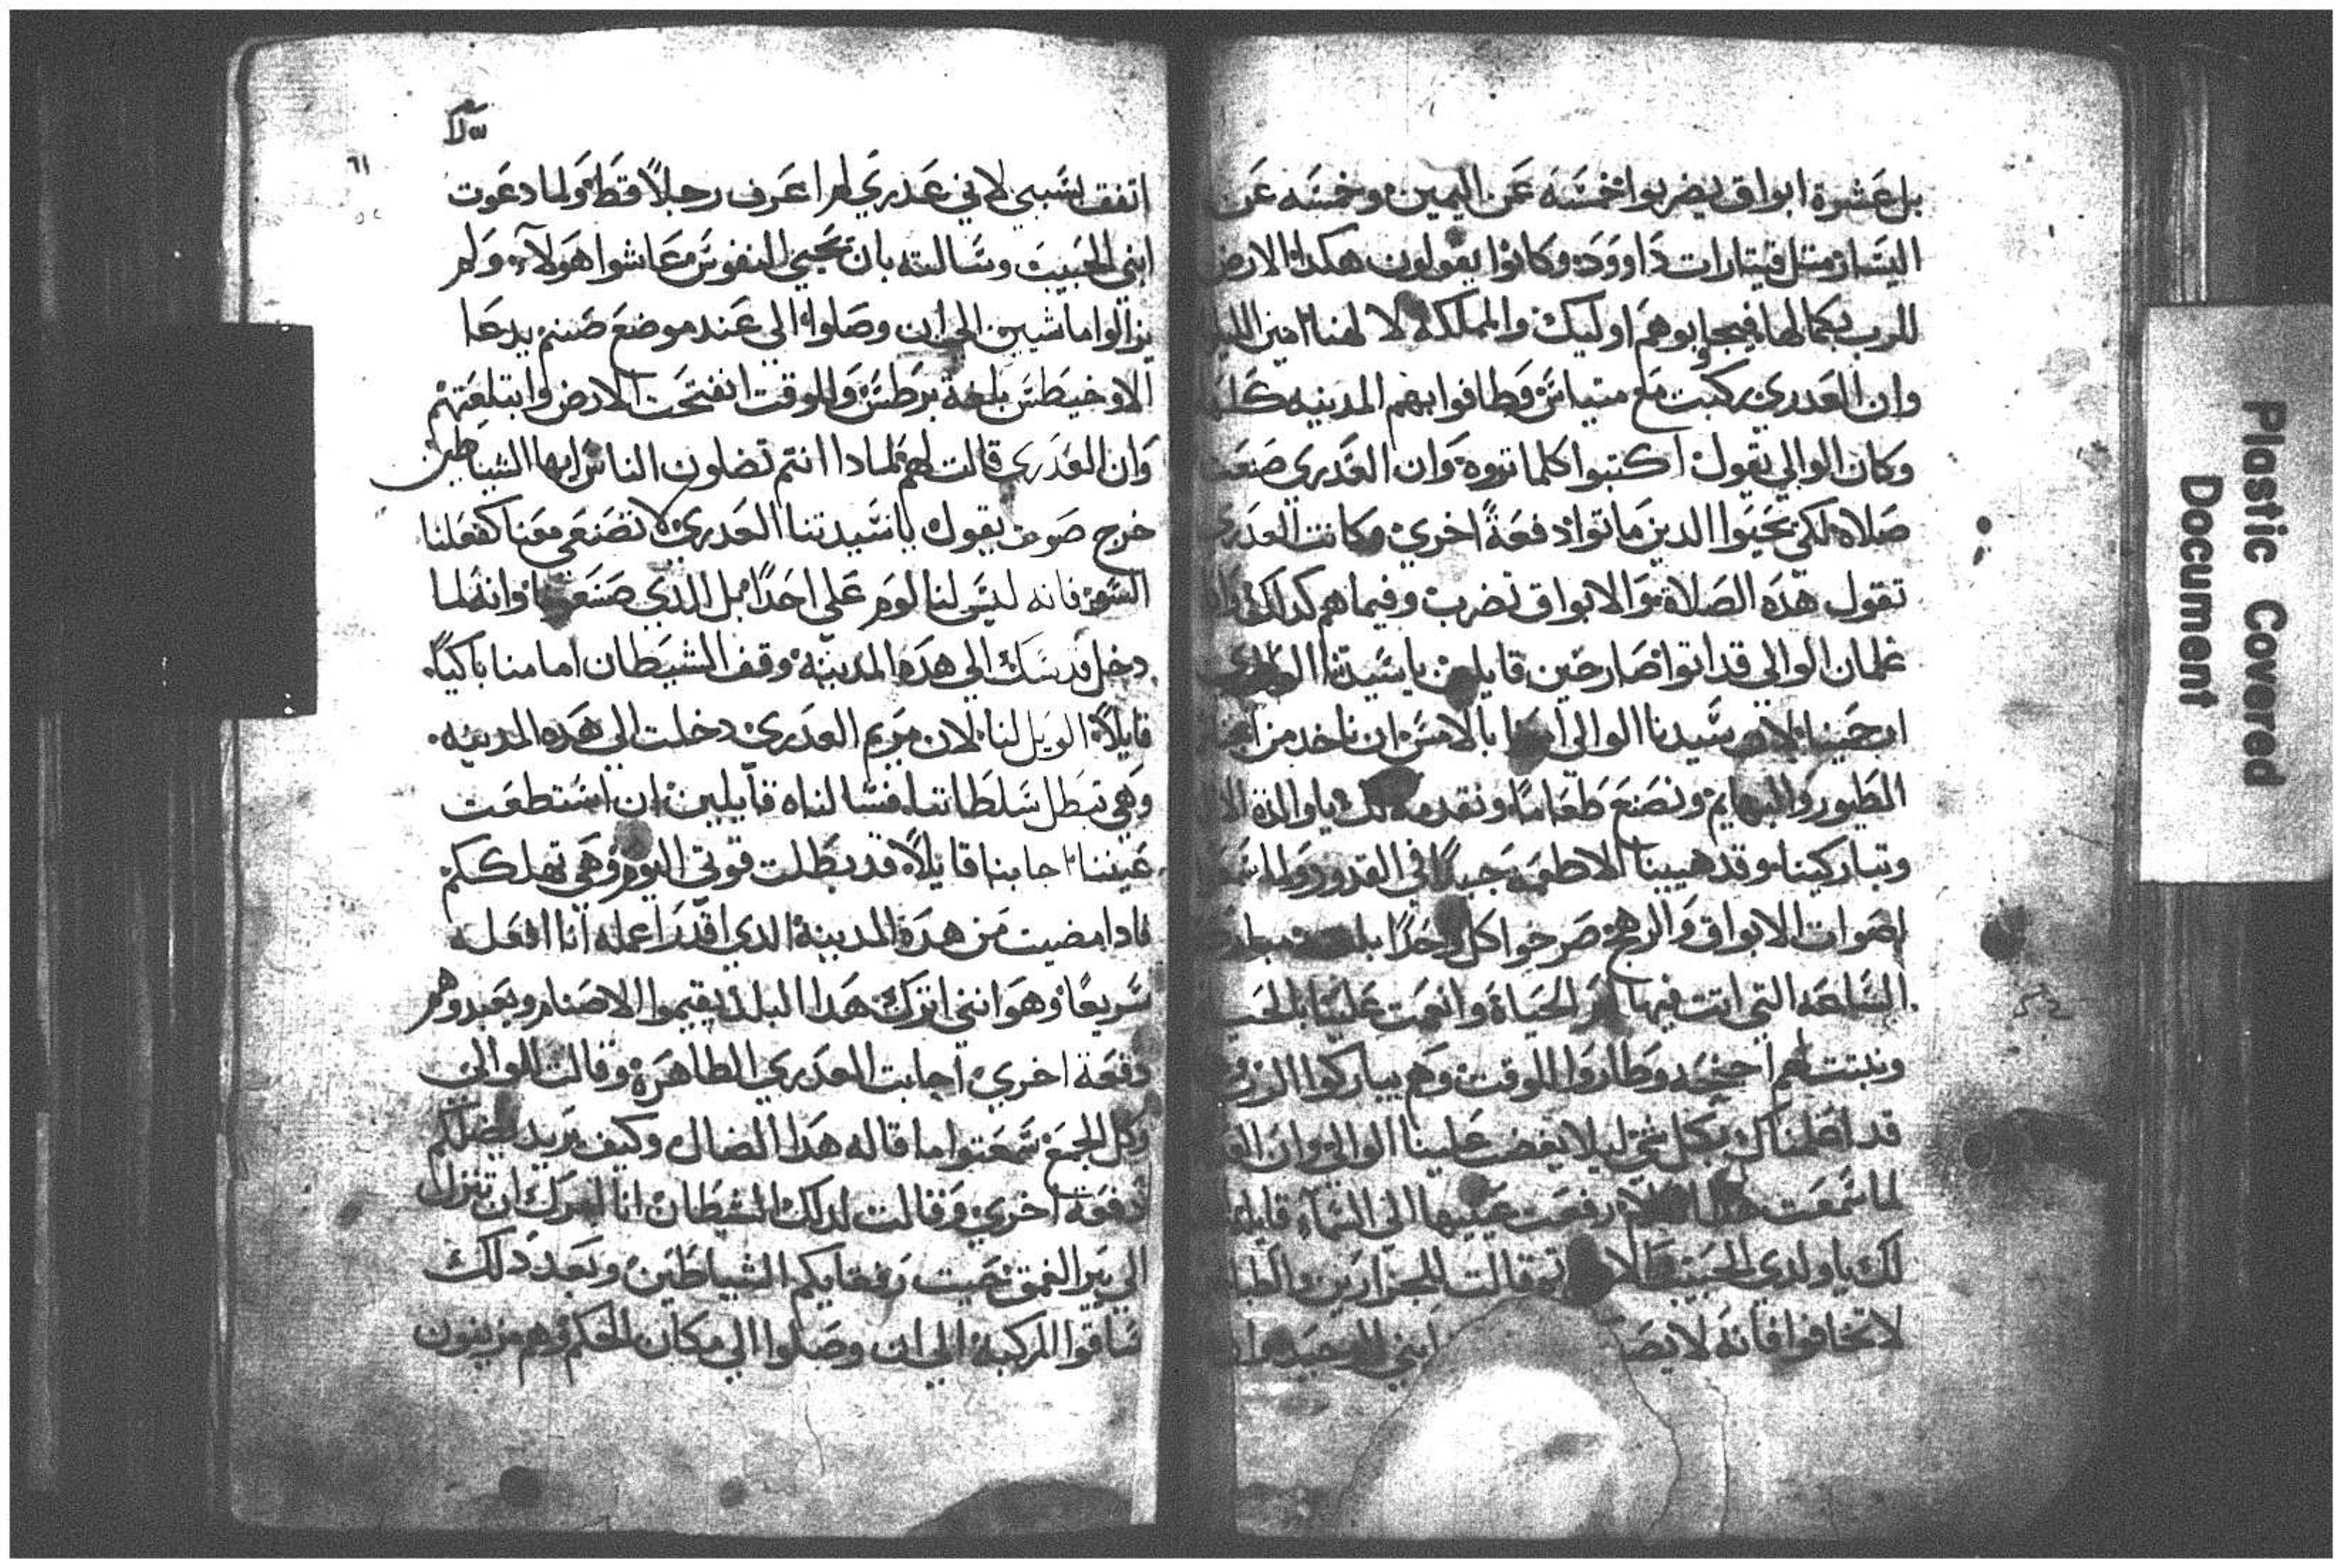 بل عشرة ابواق يضربوا خمسه عن اليمين وخمسه عن
اليسار مثل قيتارات داوود وكانوا يقولون هكدا الارض
للرب بكمالها فيجاوبوهم اوليك والمملكه لا لهنا امين
وان العدري ركبت مع متياس وطافوا بهم المدينه كلها
وكان الوالي يقول اكتبوا كلما تروه وان العدري صنعت
صلاه لكي تحيوا الدين ماتوا دفعة اخري وكانت العدري
تقول هده الصلاة والابواق تضرب وفيما هم كدلك
غلمان الوالي قد اتوا صارخين قايلين يا سيدتنا
ارحمينا لان سيدنا الوالي امرنا بالامس ان ناخد من
الطيور والبهايم ونصنع طعاما ونقدمه لك يا والدة الاله
وتباركينا وقد هيينا الاطعمه جيدا في القدور ولما سمعوا
اصوات الابواق والرهج صرخوا كل واحدا
الساعه التي اتت فيها ام الحياة وانعمت علينا
ونبتت لهم اجنحه وطاروا للوقت وهم يباركوا الرب
قد اعلمناك بكل شي ليلا يغضب علينا الوالي وان
لما سمعت رفعت عينيها الي السماء قايلة
لك يا ولدي الحبيب وقالت للجزارين والطباخين
لا تخافوا فانه لا يصـ ابني الوحيد
سلا
٦١
اتفق بسببي لاني عدري لم اعرف رجلا قط ولما دعوت
ابني الحبيب وسالته بان يحيي النفوس عاشوا هولآء ولم
يزالوا ماشيين الي ان وصلوا الي عند موضع صنم يدعا
الاوخيطس بلغة برطس وللوقت انفتحت الارض وابتلعتهم
وان العدري قالت لهم لمادا انتم تضلون الناس ايها الشياطين
خرج صوت يقول يا سيدتنا العدري لا تصنعي معنا كفعلنا
السو فانه ليس لنا لوم علي احدا بل الدي وانه لما
دخل قدسك الي هده المدينه وقف الشيطان امامنا باكيا
قايلا الويل لنا لان مريم العدري دخلت الي هده المدينه
وهي تبطل سلطاتنا فسالناه قايلين ان استطعت
عيننا اجابنا قايلا قد بطلت قوتي اليوم وهي تهلككم
فادا مضيت من هدة المدينة الدي اقدر اعمله انا افعله
سريعا وهو انني اترك هدا البلد يقيموا الاصنام ويعبدوهم
دفعة اخري اجابت العدري الطاهرة وقالت للوالي
وكل الجمع سمعتوا ما قاله هدا الضال وكيف يريد يضلكم
دفعه اخري وقالت لدلك الشيطان انا امرك ان تنزل
الي بير العمق تحيت رفقايكم الشياطين وبعد دلك
ساقوا المركبة الي ان وصلوا الي مكان الحكم وهم مزيفون
Plastic Covered
Document